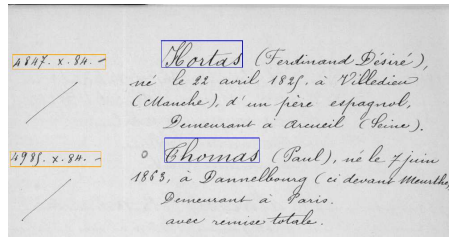 4847. x. 84. - Hortas (Ferdinand Désiré),
né le 22 avril 1825. à Villedieu
(Manche), d'un père espagnol,
Demeurant à Arcueil (Seine).
4985. x. 84. - o Thomas (Paul), né le 7 juin
1863, à Dannelbourg (ci devant Meurthe,
Demeurant à Paris.
avec remise totale.